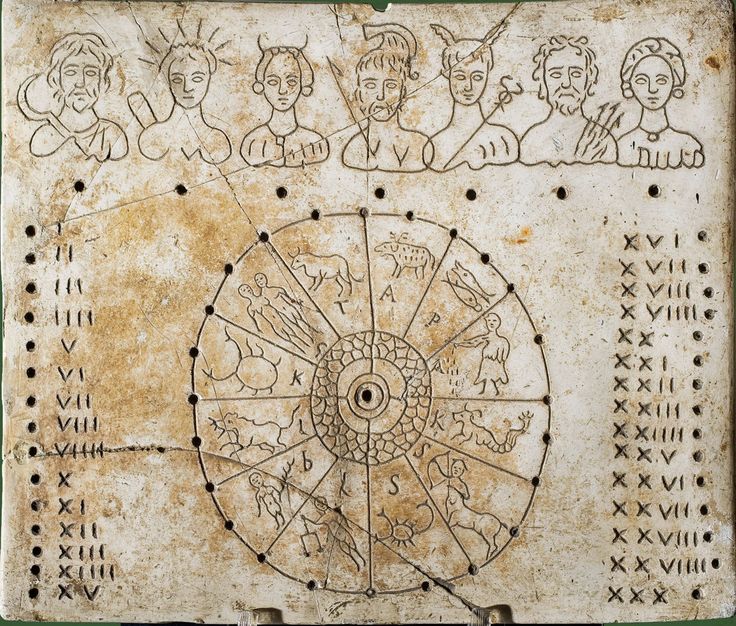 I
II
III
IIII
V
VI
VII
VIII
VIIII
X
XI
XII
XIII
XIIII
XV
T
A
P
K
K
L
S
b
L
S
XVI
XVII
XVIII
XVIIII
XX
XXI
XXII
XXIII
XXIIII
XXV
XXVI
XXVII
XXVIII
XXVIIII
XXX